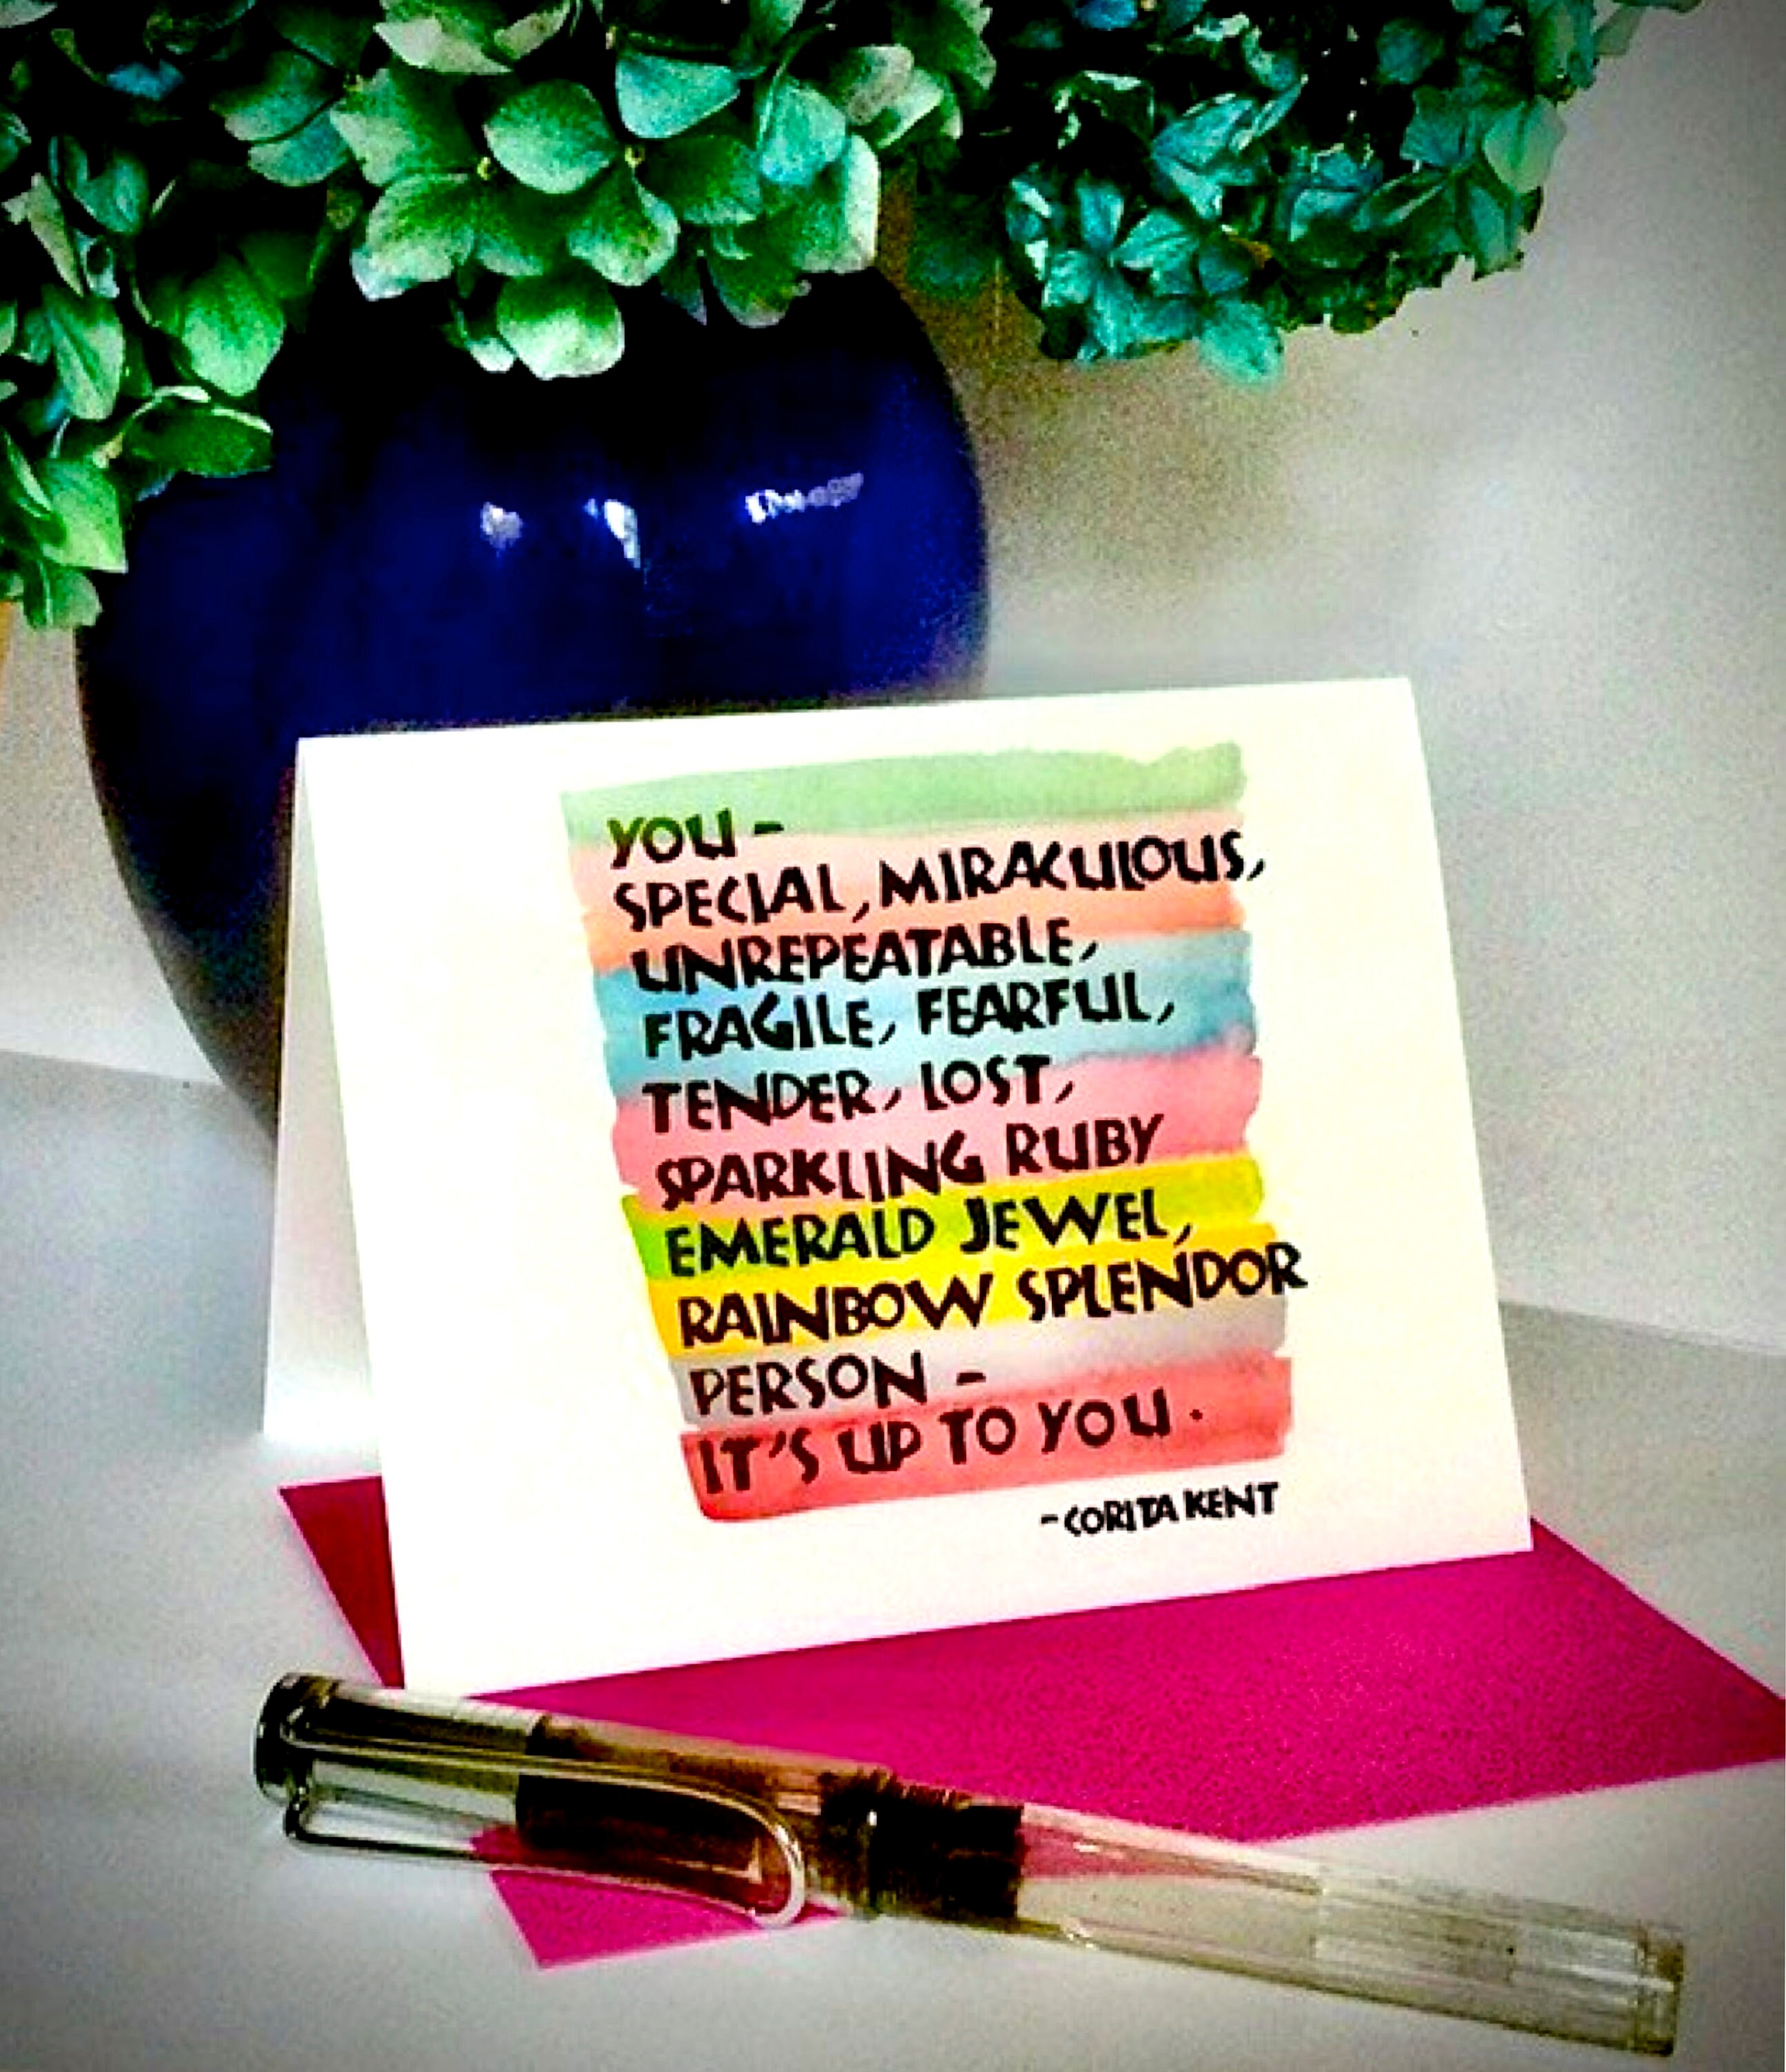 YOU-
SPECIAL, MIRACULOUS,
UNREPEATABLE,
FRAGILE, FEARFUL,
TENDER, LOST,
SPARKLING RUBY
EMERALD JEWEL,
RAINBOW SPLENDOR
PERSON -
IT'S UP TO YOU.
-CORITA KENT